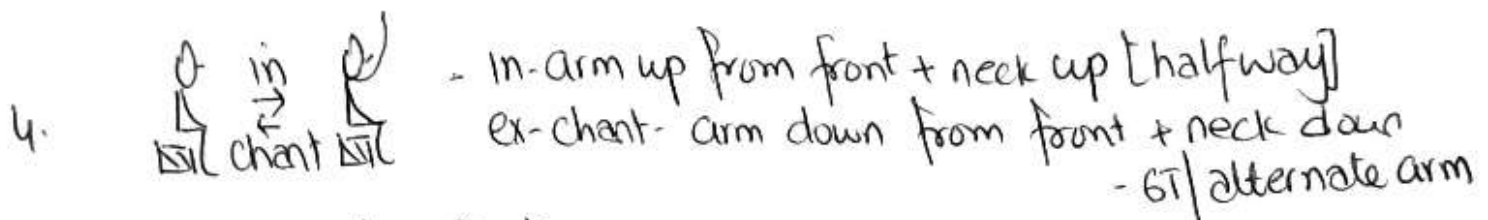 in - In-arm up from front + neck up [halfway]
4. chant ex-chant- arm down from front + neck down
- 6T/alternate arm